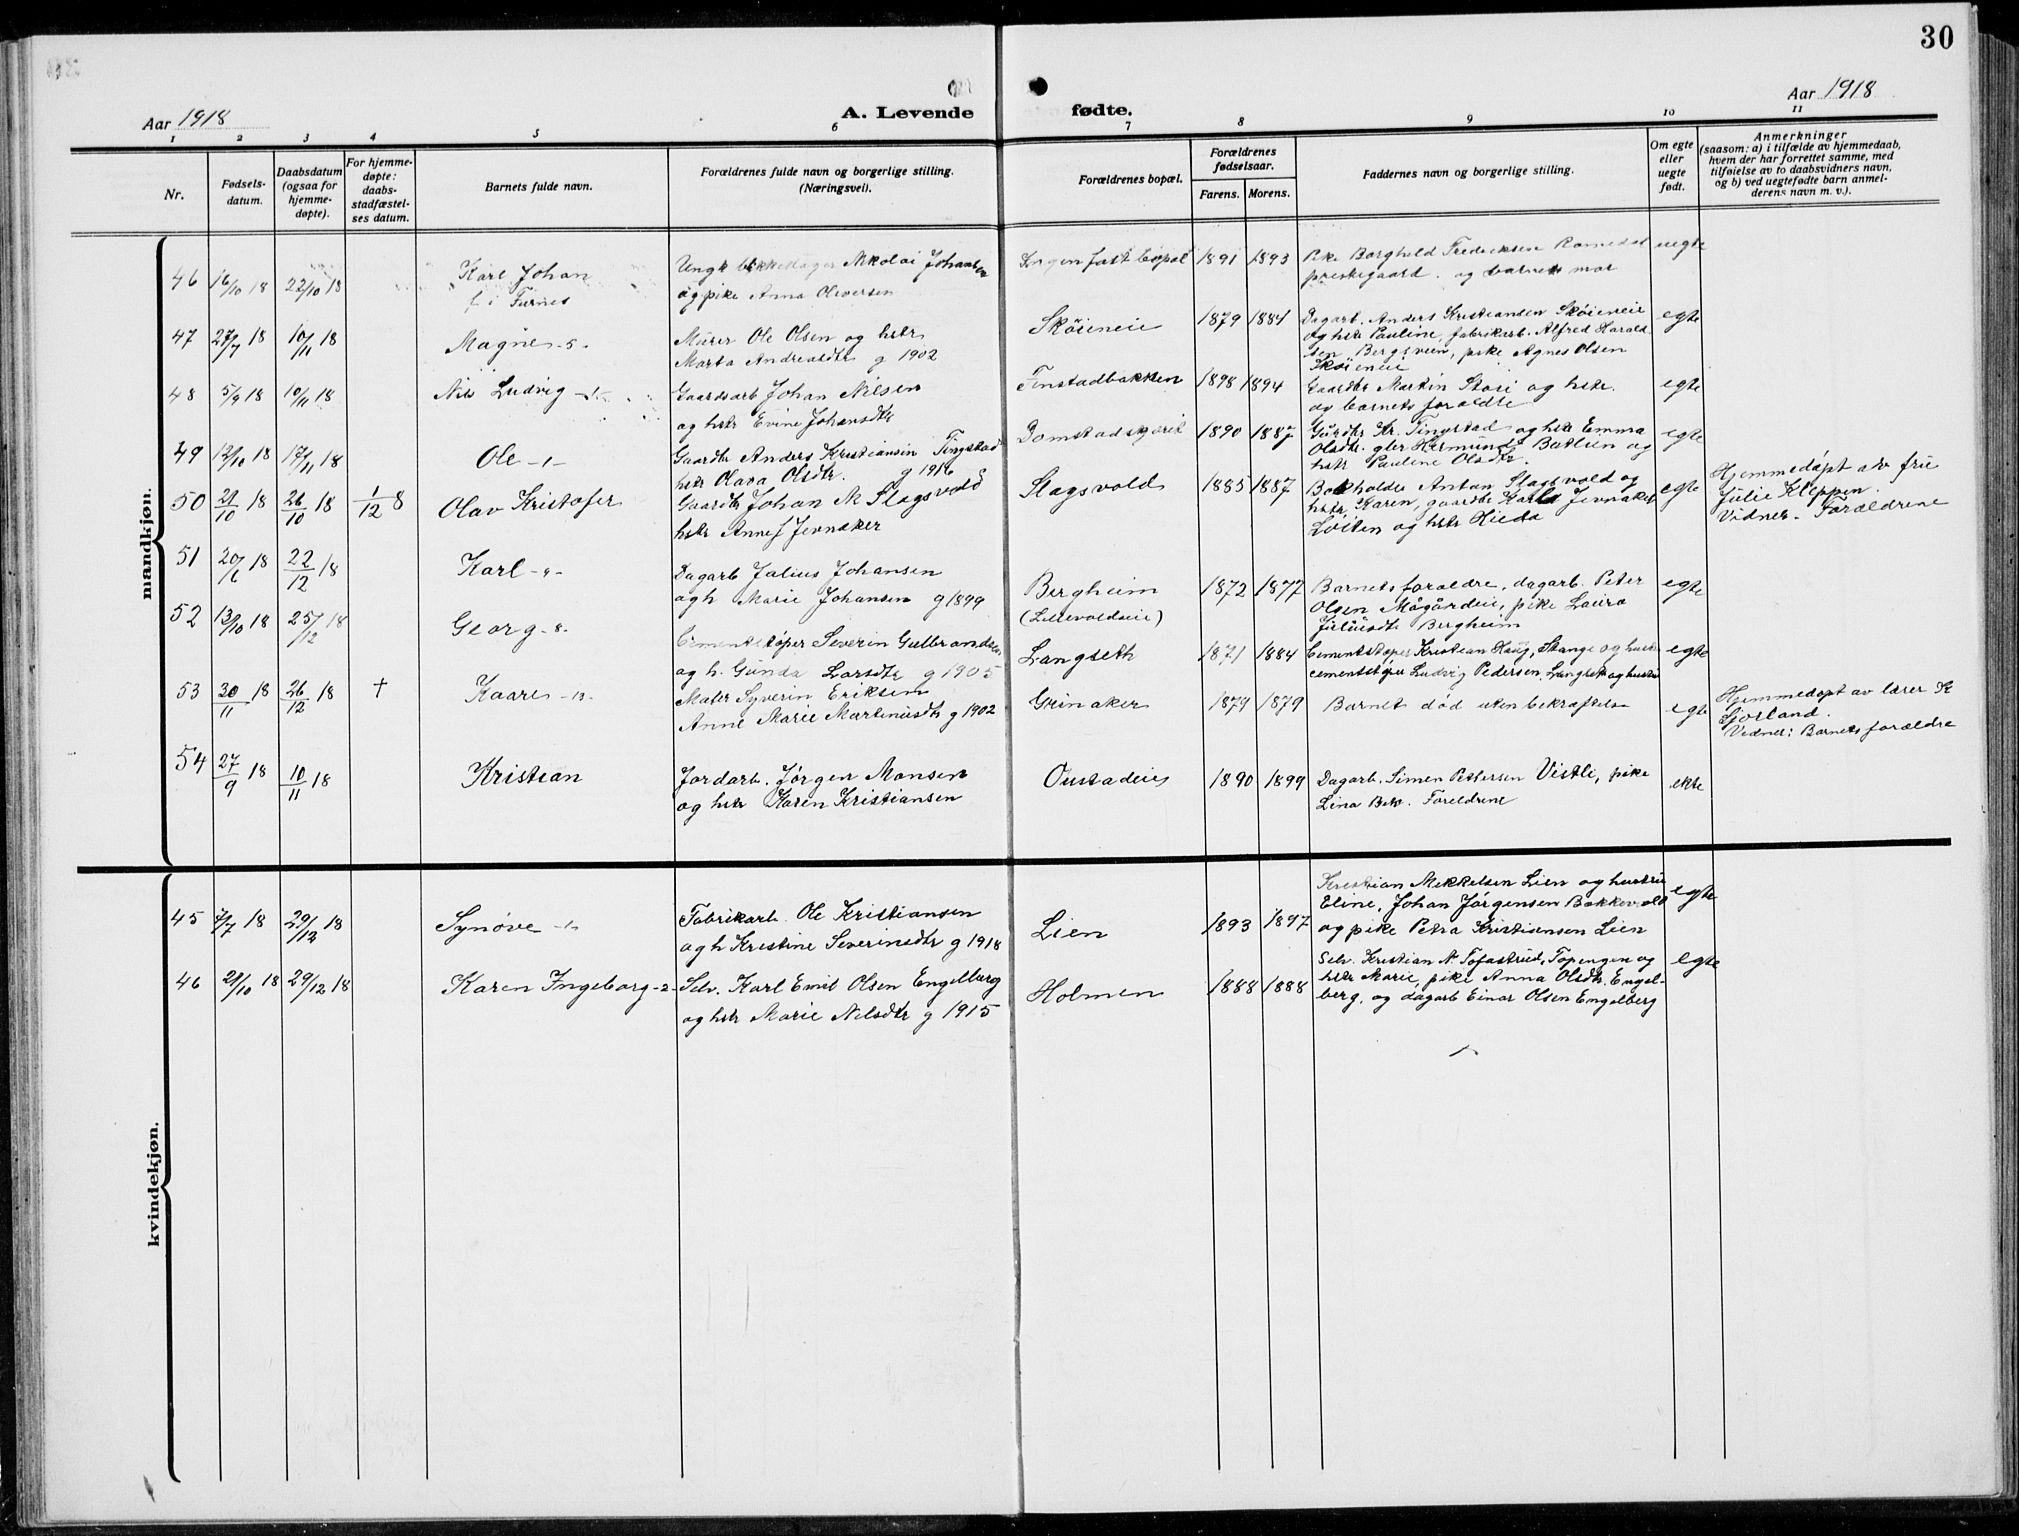 30
Aar 1918
A. Levende fødte.
Aar 1918
1 2 3 4 5 6 7 8 9 10 11
Nr.
Fødsels-
datum.
Daabsdatum
(ogsaa for
hjemme-
døpte).
For hjemme-
døpte:
daabs-
stadfæstel-
ses datum.
Barnets fulde navn.
Forældrenes fulde navn og borgerlige stilling.
(Næringsvei).
Forældrenes bopæl.
Forældrenes
fødselsaar.
Farens. Morens.
Faddernes navn og borgerlige stilling.
Om egte
eller
uegte
født.
Anmerkninger
(saasom: a) i tilfælde av hjemmedaab,
hvem der har forrettet samme, med
tilføielse av to daabsvidners navn,
og b) ved uegtefødte barn anmel-
derens navn m. v.).
mandkjøn.
46 16/10 18 22/10 18
Karl Johan
f. i Furnes
Ungk. Nikolai Johansen
og pike Anna Oliversen
Ingen fast bopæl 1891 1893
Pike Borghild Fredriksen Romedal
prestegaard. og barnets mor
uegte
47 27/7 18 10/11 18
Magne -5-
Murer Ole Olsen og hstr
Marta Andreasdtr g 1902
Skøieneie 1879 1884
Dagarb. Anders Kristiansen Skøieneie
og hstr Pauline, fabrikarb. Alfred Harald
sen Bergsveen, pike Agnes Olsen
Skøieneie
egte
48 5/9 18 10/11 18
Nils Ludvig -1-
Gaardsarb Johan Nilsen
og hstr Evine Johansdtr
Finstadbakken 1898 1894
Gaardbr Martin Stori og hstr.
og barnets forældre
egte
49 12/10 18 17/11 18
Ole -1-
Gaardbr Anders Kristiansen Tingstad
hstr Olava Olsdtr. g 1916
1890 1887
Gaardbr. Kr. Tingstad og hstr Emma
Olsdtr. gbr Hermund og
hstr Pauline Olsdtr.
egte
50 21/10 18 26/10 18 1/12 8
Olav Kristofer
Gaardbr Johan M Slagsvold
hstr Anne J Jevnaker
Slagsvold 1885 1887
Bokholder Anton Slagsvold og
hstr Karen, gaardbr Karl Jevnaker
Løiten og hstr
egte
Hjemmedøpt av frue
Julie Kleppen.
Vidner. Forældrene
51 20/6 18 22/12 18
Karl -9-
Dagarb Julius Johansen
og h Marie Johansen g 1899
Bergheim
(Lillevoldseie)
1872 1877
Barnets forældre, dagarb. Peter
Olsen Mågårdeie, pike Laura
Juliusdtr Bergheim
egte
52 13/10 18 25/12 18
Georg -8-
Cementstøper Severin Gulbrandsen
og h. Gunda Larsdtr g 1905
Langseth 1871 1884
Cementstøper Kristian Haug, Stange og hustr
cementstøper Ludvig Pedersen, Langseth og hustru
egte
53 30/11 18 26/12 18 †
Kaare -13-
Maler Syverin Eriksen
Anne Marie Martinusdtr g 1902
Grinaker 1879 1879
Barnet død uten bekræftelse
egte
Hjemmedøpt av lærer K
Gjørland.
Vidner: Barnets forældre
54 27/9 18 10/11 18
Kristian
Jordarb. Jørgen Monsen
og hstr Karen Kristiansen
Oustadeie 1890 1899
Dagarb. Simen Pettersen Vistli, pike
Lina Foreldrene
ekte
kvindekjøn.
45 7/7 18 29/12 18
Synøve -1-
Fabrikarb. Ole Kristiansen
og h Kristine Severinsdtr g 1918
Lien 1893 1897
Kristian Mikkelsen Lien og hustru
Eline, Johan Jørgensen Bakkevold
og pike Petra Kristiansen Lien
egte
46 21/10 18 29/12 18
Karen Ingeborg -2-
Selv. Karl Emil Olsen Engelberg
og hstr Marie Nilsdtr g 1915
Holmen 1888 1888
Selv. Kristian N. Tofastrud, Topengen og
hstr Marie, pike Anna Olsdtr. Engel-
berg, og dagarb Einar Olsen Engelberg
egte